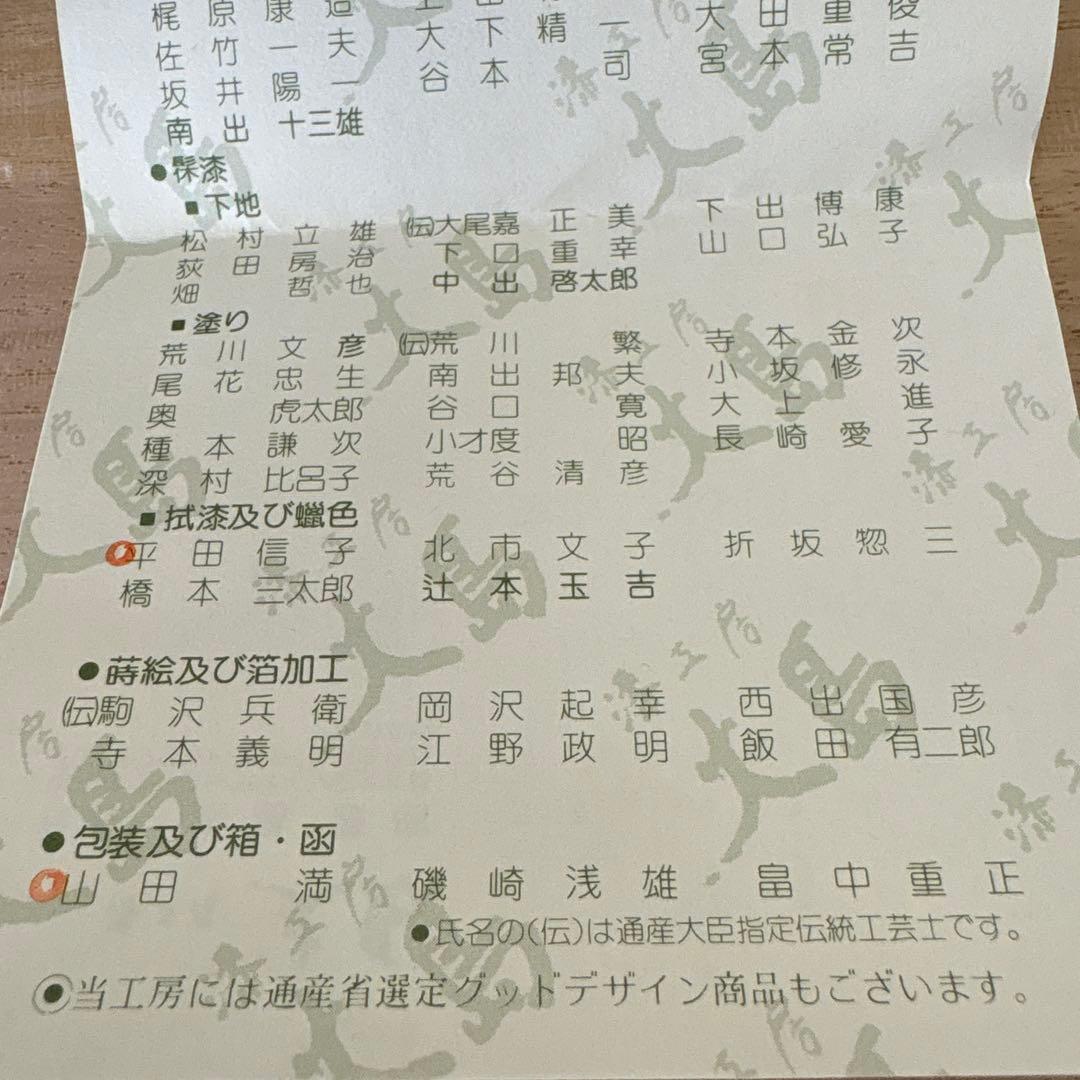 梶原康造
佐竹一夫
坂井陽一 大谷下本精司 大宮田本重常俊吉
南出十三雄
●髹漆
■下地
松村立雄 (伝)大尾嘉正美 下出博康
荻田房治 下口重幸 山口弘子
畑哲也 中出啓太郎
■塗り
荒川文彦 (伝)荒川繁 寺本金次
尾花忠生 南出邦夫 小坂修永
奥虎太郎 谷口寛 大上進
種本謙次 小才度昭 長崎愛子
深村比呂子 荒谷清彦
■拭漆及び蠟色
平田信子 北市文子 折坂惣三
橋本三太郎 辻本玉吉
●蒔絵及び箔加工
(伝)駒沢兵衛 岡沢起幸 西出国彦
寺本義明 江野政明 飯田有二郎
●包装及び箱・函
山田満 磯崎浅雄 畠中重正
●氏名の(伝)は通産大臣指定伝統工芸士です。
◉当工房には通産省選定グッドデザイン商品もございます。
大島
漆工房